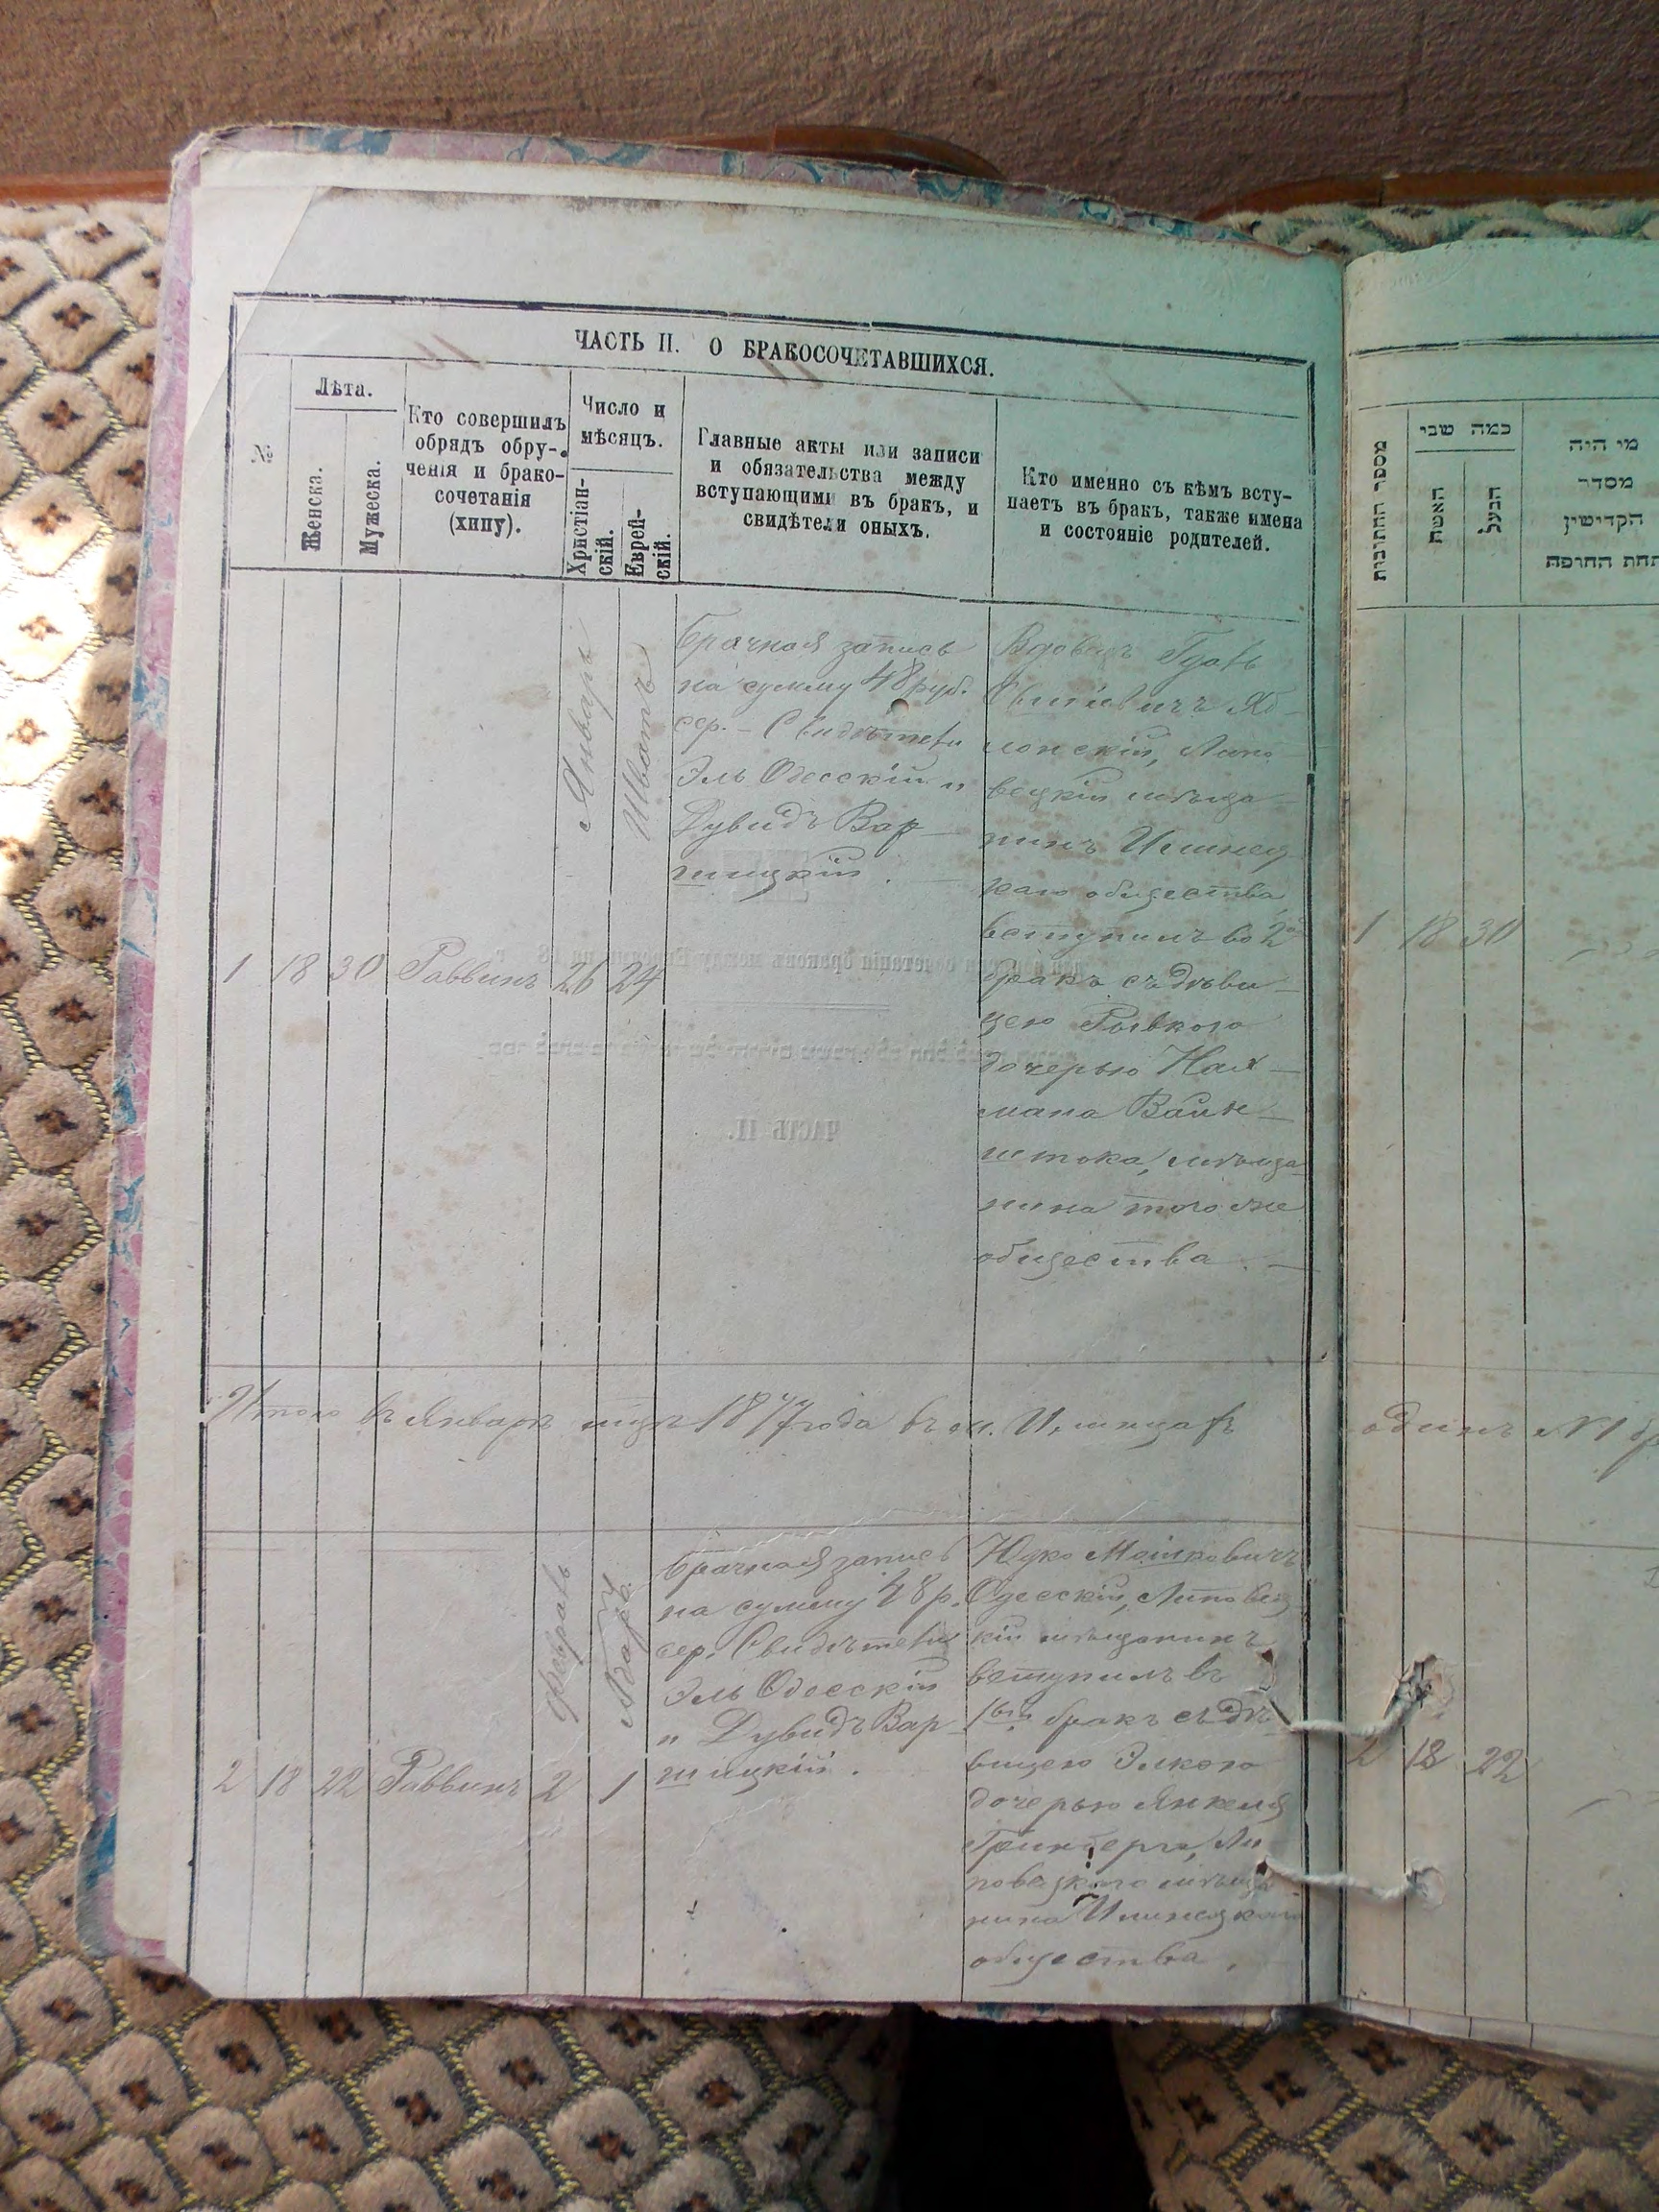 ЧАСТЬ II. О БРАКОСОЧЕТАВШИХСЯ.
№
Лѣта.
Женска.
Мужеска.
Кто совершилъ
обрядъ обру-
ченія и брако-
сочетанія
(хипу).
Число и
мѣсяцъ.
Христіан-
скій.
Еврей-
скій.
Главные акты или записи
и обязательства между
вступающими въ бракъ, и
свидѣтели оныхъ.
Кто именно съ кѣмъ всту-
паетъ въ бракъ, также имена
и состояніе родителей.
1 18 30 Раввинъ
Январь
26
Шватъ
24
Брачная запись
на сумму 48 руб.
сер. - Свидѣтели
Эль Одесскій "
Дувидъ Вар-
шицкій.
Вдовецъ
Яб-
лонскій, Липо-
вецкій мѣща-
нинъ Илинец-
каго общества
вступилъ во 2й
бракъ съ дѣви-
цею Рывкою
дочерью Нах-
мана Вайн-
штока, мѣща-
нина того же
общества.
Итого въ Январѣ мцѣ 1877 года въ м. Илинцахъ
2 18 22 Раввинъ
Февраль
2
Адаръ
1
Брачная запись
на сумму 48 р.
сер. Свидѣтели
Эль Одесскій
" Дувидъ Вар-
шицкій.
Юдко Мошковичъ
Одесскій, Липовец-
кій мѣщанинъ
вступилъ въ
1ый бракъ съ дѣ-
вицею Элкою
дочерью Янкеля
Ли-
повецкаго мѣща-
нина Илинецкаго
общества.
מספר החתונות
כמה שני
האשה
הבעל
מי היה
מסדר
הקדישין
תחת החופה
1 18 30
одинъ №1
2 18 22
ЧАСТЬ II.